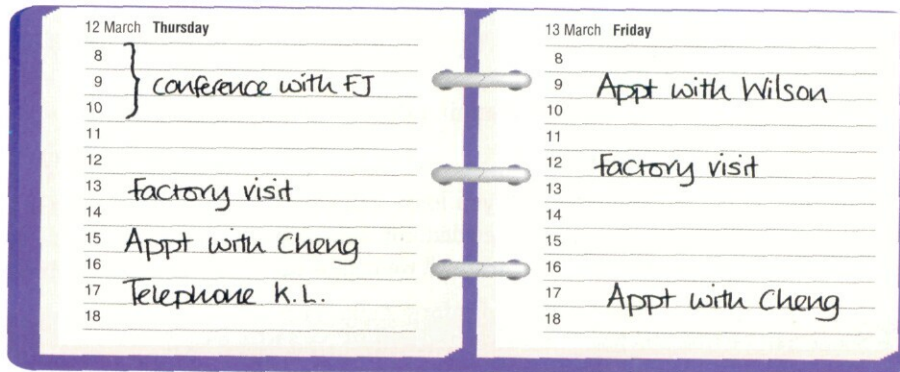 12 March Thursday
8
9 conference with FJ
10
11
12
13 factory visit
14
15 Appt with Cheng
16
17 Telephone K.L.
18
13 March Friday
8
9 Appt with Wilson
10
11
12 factory visit
13
14
15
16
17 Appt with Cheng
18